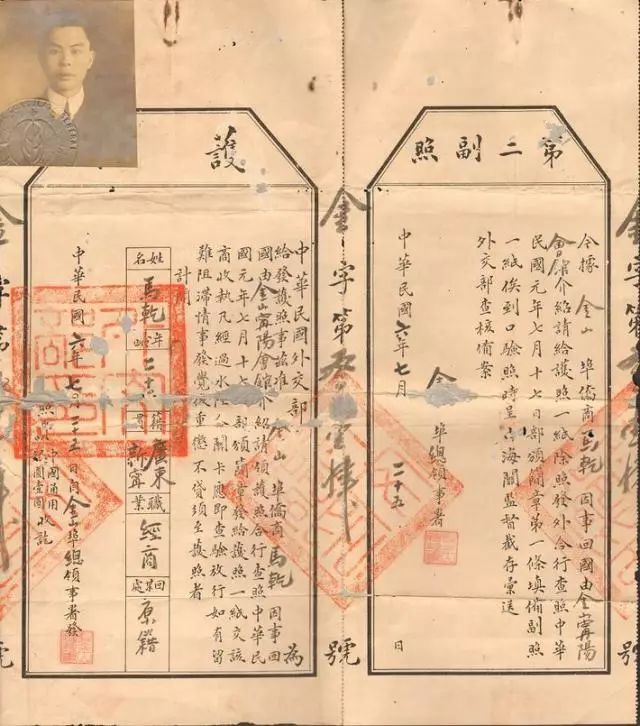 第二副照
今據 金山 埠僑商 馬乾 因事回國由 金山甯陽
會館介紹請給護照一紙除照發外合行查照中華
民國元年七月十七日部頒簡章第一條填備副照
一紙俟到口驗照時呈由海關監督裁存彙送
外交部查核備案
金 埠總領事署
中華民國六年七月二十五日
金字第 壹 號
護
中華民國外交部 為
給發護照事茲准 金山 埠僑商 馬乾 因事回
國由金山甯陽會館介紹請領護照合行查照中華民
國元年七月十七日部頒簡章發給護照一紙交該
商收執凡經過水陸各關卡應即查驗放行如有留
難阻滯情事發覺後重懲不貸須至護照者
計開
姓名 馬乾 年 籍 廣東新寧 職業 經商 回某處 原籍
中華民國六年七月二十五日由金山埠總領事署發
中國通用
照 銀圓壹圓收訖